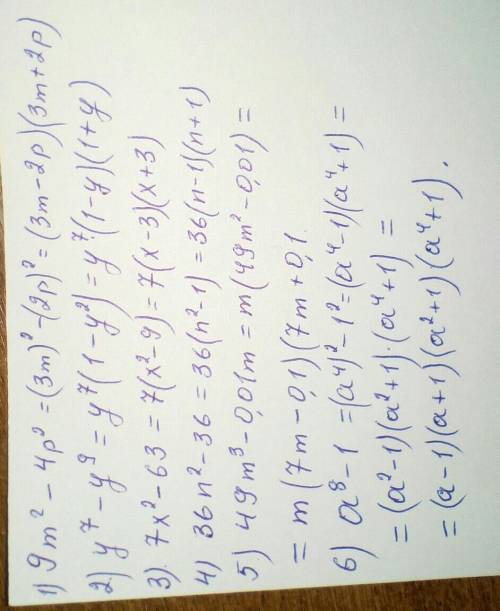 1) 9m² - 4p² = (3m)² - (2p)² = (3m - 2p)(3m + 2p)
2) y⁷ - y⁹ = y⁷(1 - y²) = y⁷·(1 - y)(1 + y)
3). 7x² - 63 = 7(x² - 9) = 7(x - 3)(x + 3)
4) 36n² - 36 = 36(n² - 1) = 36(n - 1)(n + 1)
5) 49m³ - 0,01m = m(49m² - 0,01) =
= m(7m - 0,1)(7m + 0,1.
6) a⁸ - 1 = (a⁴)² - 1² = (a⁴ - 1)(a⁴ + 1) =
= (a² - 1)(a² + 1)·(a⁴ + 1) =
= (a - 1)(a + 1)(a² + 1)(a⁴ + 1).